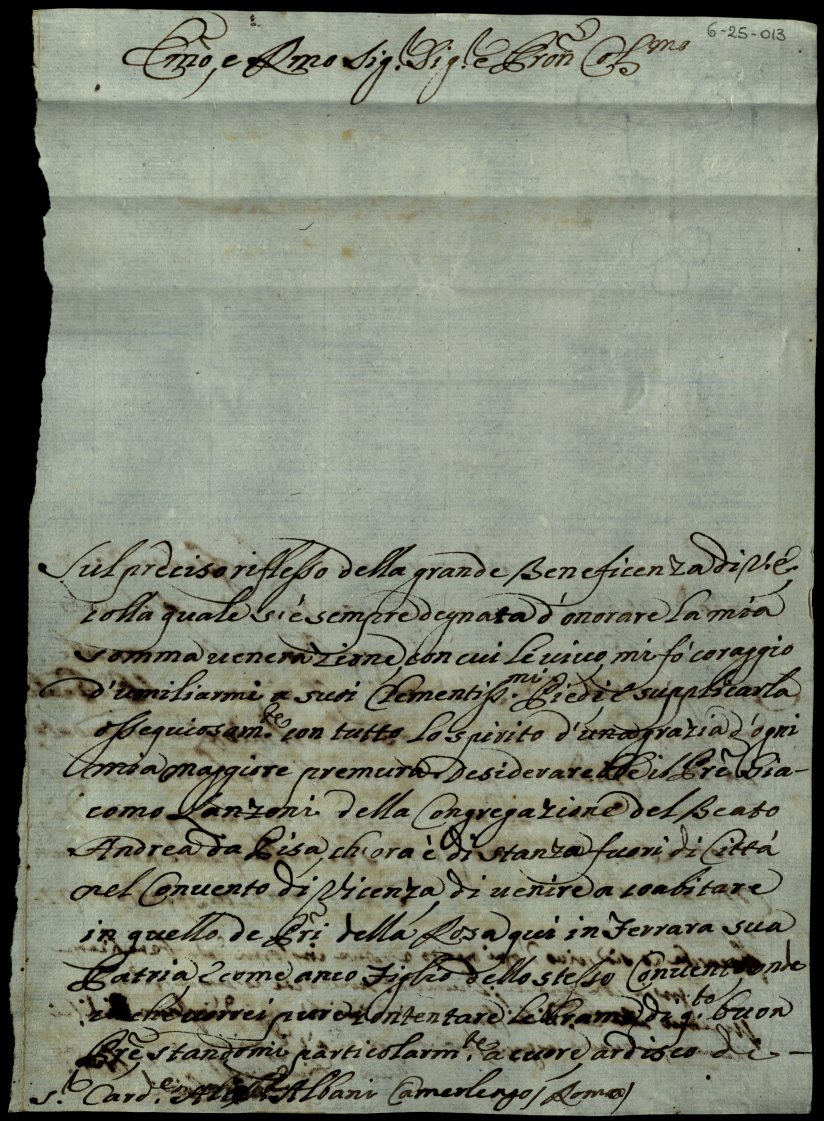 6-25-013
Em̃o, e Rmo Sig.r Sig.r e Pron̄ Col.mo
Sul preciso riflesso della grande Beneficenza di V: E:
colla quale s'è sempre degnata d'onorare la mia
somma venerazione, con cui le vivo, mi fò coraggio
d'umiliarmi a suoi Clementiss.mi Piedi e supplicarla
ossequiosam.te con tutto lo spirito d'una grazia d'ogni
mia maggiore premura. Desiderarebbe il Prẽ Gia-
como Lanzoni della Congregazione del Beato
Andrea da Pisa, ch'ora è di stanza fuori di Città
nel Convento di Vicenza, di venire a coabitare
in quello de Pr̃i della Rosa qui in Ferrara sua
Patria, e come anco Figlio dello stesso Convento, onde
io che vorrei pure contentare le Brame di q.to buon
Prẽ, standomi particolarm.te a cuore, ardisco di
S.r Card.e Albani Camerlengo / Roma /